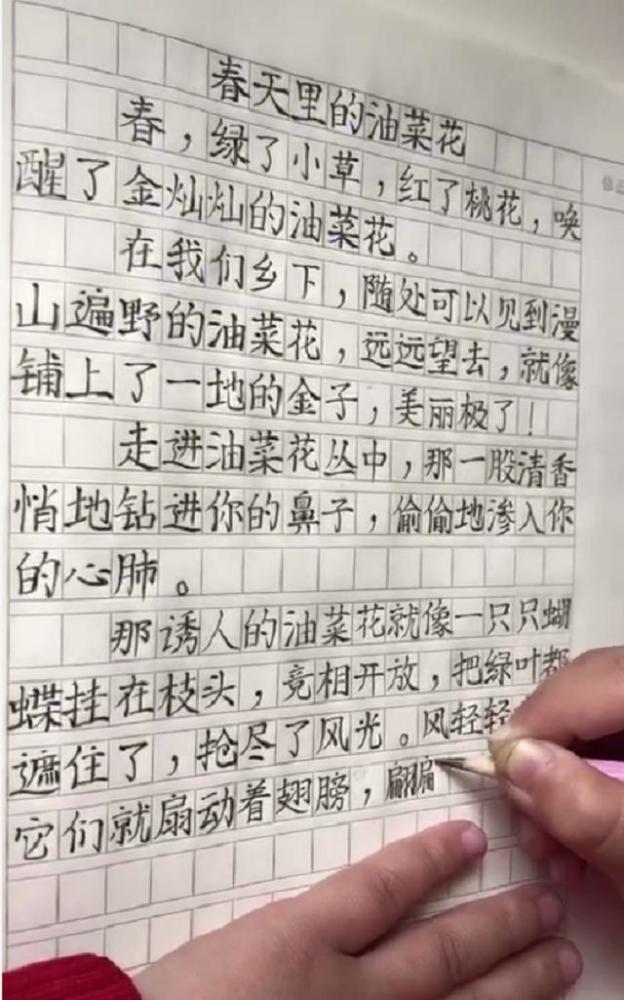 春天里的油菜花
春，绿了小草，红了桃花，唤
醒了金灿灿的油菜花。
在我们乡下，随处可以见到漫
山遍野的油菜花，远远望去，就像
铺上了一地的金子，美丽极了！
走进油菜花丛中，那一股清香
悄地钻进你的鼻子，偷偷地渗入你
的心肺。
那诱人的油菜花就像一只只蝴
蝶挂在枝头，竞相开放，把绿叶都
遮住了，抢尽了风光。风轻轻
它们就扇动着翅膀，翩